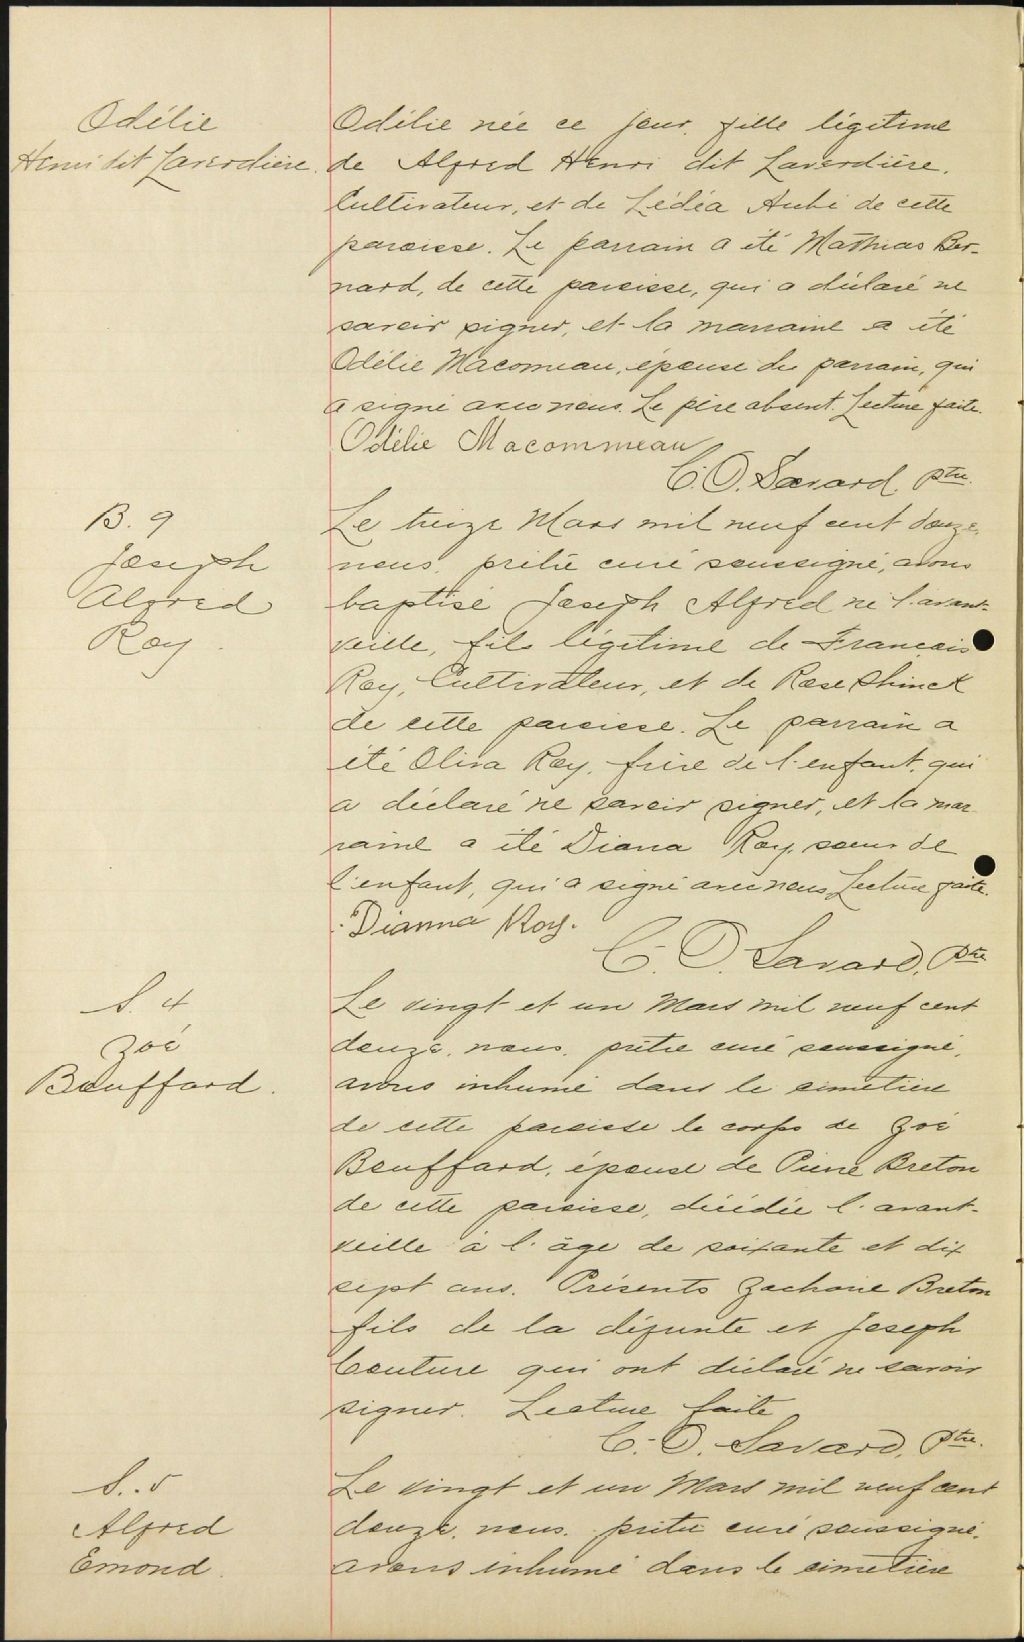 Odélie
Henri dit Laverdière.
Odélie née ce jour, fille légitime
de Alfred Henri dit Laverdière,
Cultivateur, et de Lédéa Aubé de cette
paroisse. Le parrain a été Mathias Ber-
nard, de cette paroisse, qui a déclaré ne
savoir signer, et la marraine a été
Odélie Macomeau, épouse du parrain, qui
a signé avec nous. Le père absent. Lecture faite.
Odélie Macommeau
C. O. Savard, ptre.
B. 9
Joseph
Alfred
Roy.
Le treize Mars mil neuf cent douze,
nous, prêtre curé soussigné, avons
baptisé Joseph Alfred né l'avant-
veille, fils légitime de François
Roy, Cultivateur, et de Rose
de cette paroisse. Le parrain a
été Oliva Roy, frère de l'enfant, qui
a déclaré ne savoir signer, et la mar-
raine a été Diana Roy, sœur de
l'enfant, qui a signé avec nous. Lecture faite.
Dianna Roy.
C. O. Savard, Ptre
S. 4
Zoé
Bouffard.
Le vingt et un Mars mil neuf cent
douze, nous, prêtre curé soussigné,
avons inhumé dans le cimetière
de cette paroisse le corps de Zoé
Bouffard, épouse de Pierre Breton
de cette paroisse, décédée l'avant-
veille à l'âge de soixante et dix
sept ans. Présents Zacharie Breton
fils de la défunte et Joseph
Couture qui ont déclaré ne savoir
signer. Lecture faite
C. O. Savard, Ptre.
S. 5
Alfred
Emond.
Le vingt et un Mars mil neuf cent
douze, nous, prêtre curé soussigné,
avons inhumé dans le cimetière